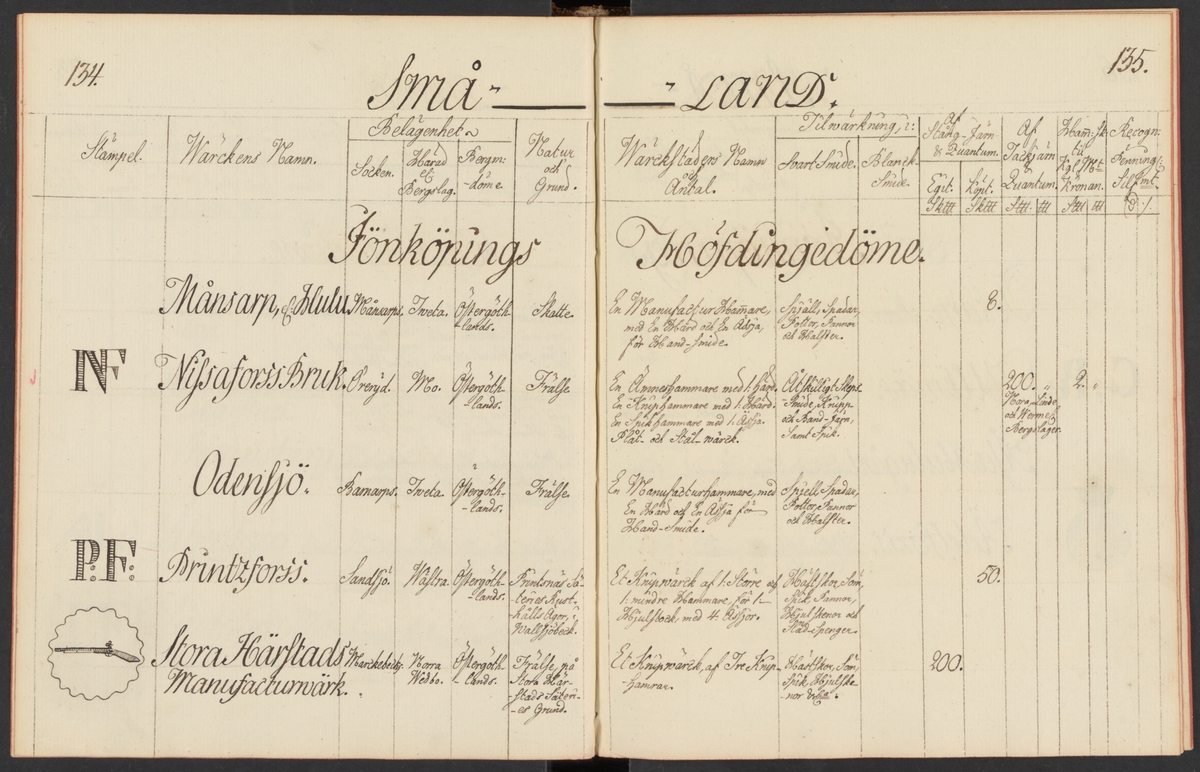 134.
135.
Små-
-Land.
Stämpel.
Wärckens Namn.
Belägenhet
Socken.
Härad
et
Bergslag.
Bergm:
döme.
Natur
och
Grund.
Wärckstädens Namn
Antal.
Tilwärkning, i:
Svart Smide.
Blanck
Smide.
Af
Stång-Järn
Quantum.
Egit.
Köpt.
Sktt
Sktt
Af
Tackjärn
Quantum.
Stt. tt
til
Kronan.
Stt tt
Recogn:
Penning
Jönköpings
Höfdingedöme.
Månsarp, & Hulu.
Månsarps.
Tweta.
Östergöth-
-lands.
Skatte.
En Manufactur Hamare,
med En Härd och En Ässja,
för Hand-Smide.
Spjäll, Spadar,
Pottor, Pannor
och Halster.
8.
NF
Nissaforss Bruk.
Öreryd.
Mo.
Östergöth-
-lands.
Frälse
En Ämneshammare med 1. Härd.
En Kniphammare med 1. Härd.
En Spikhammare med 1. Ässja.
Plåt- och Stål-wärck.
Åtskilligt
-Smide, Knipp
och Band-Järn,
samt Spik.
200. "
Nora, Linde,
och Werml.
Bergslager.
2. "
Odensjö.
Barnarps.
Tweta.
Östergöth-
-lands.
Frälse
En Manufacturhammare, med
En Härd och En Ässja för
Hand-Smide.
Spjell Spadar,
Pottor, Pannor
och Halster.
P:F:
Printzforss.
Sandsjö.
Wästra.
Östergöth-
-lands.
Printsnäs Sä-
-teries Rust-
-hålls Ägor, i
Et Knipwärck af 1. Större och
1. mindre Hammare, för 1.
Hjulstock, med 4. Ässjor.
Hästskor, Söm,
Spik, Pannor,
Hjulskenor och
Städ-Spenger.
50.
Stora Härstads
Manufacturwärk.
Norra
Wedbo.
Östergöth-
-lands.
Frälse, på
Stora Här-
-stads Säteri-
-es Grund.
Et Knipwärck, af Tre Knip-
-hamrar.
Hästskor, Söm,
Spik Hjulske-
nor
200.